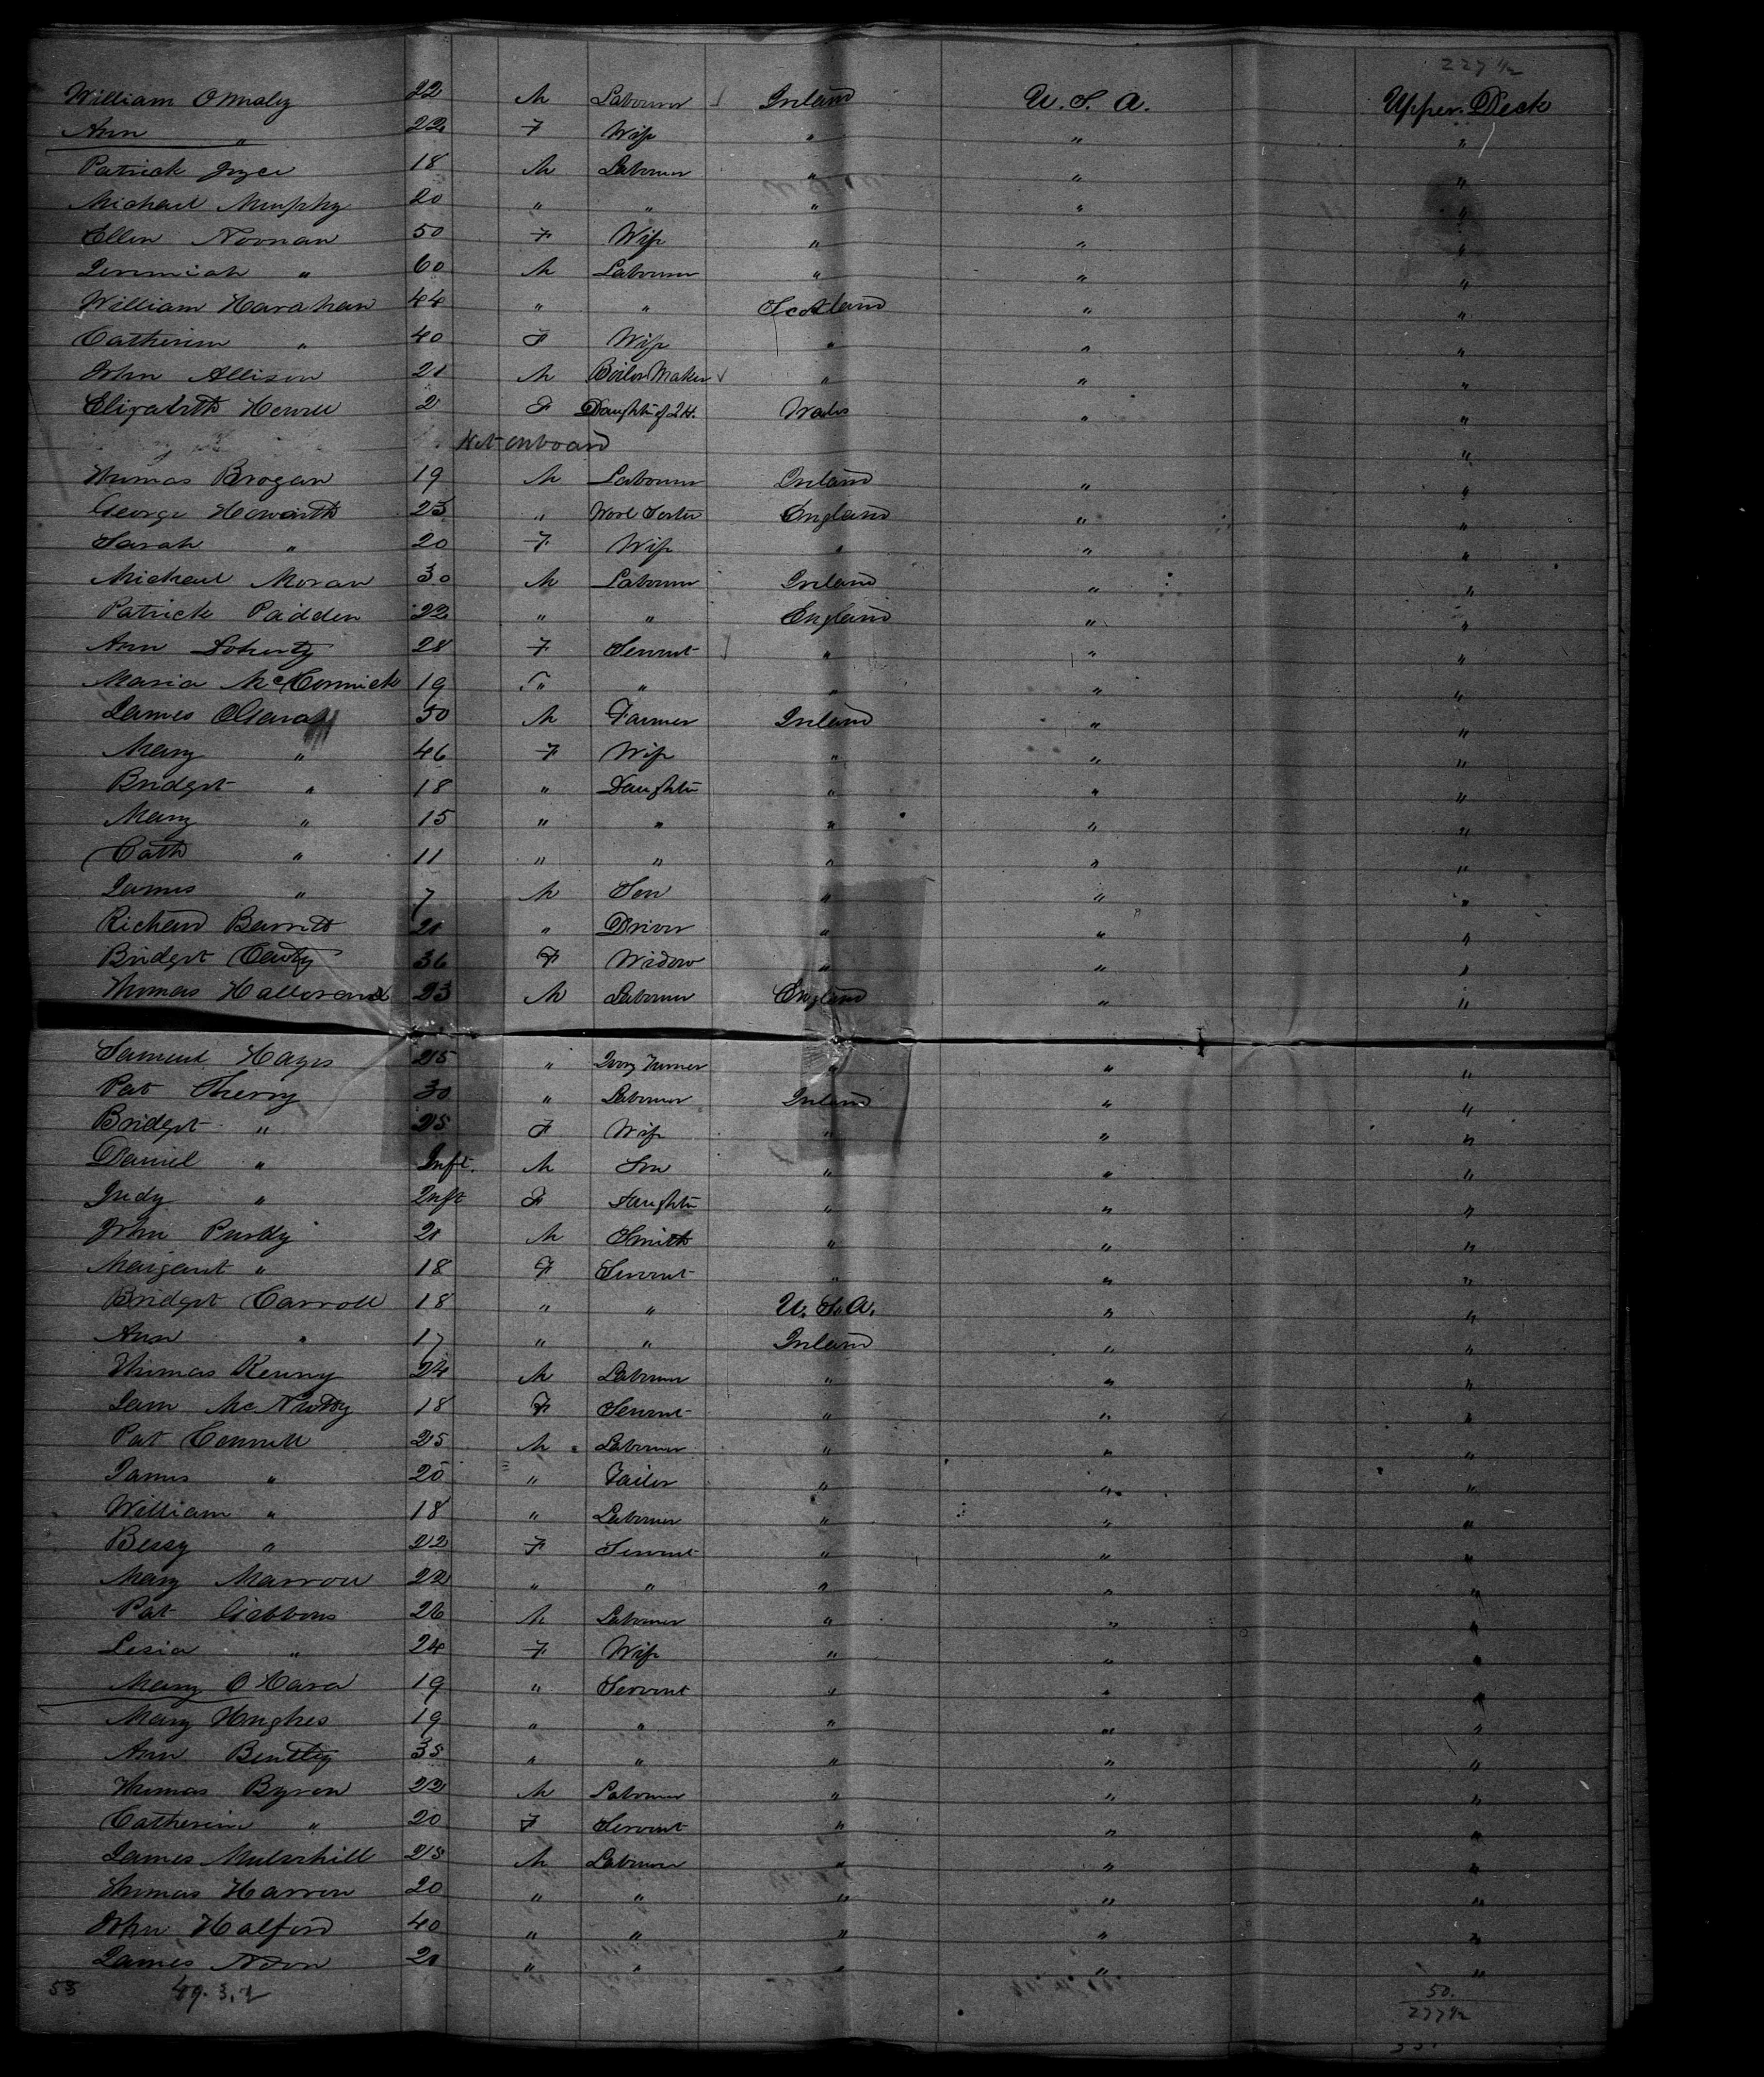 227 1/2
William OMaley 22 M Labourer Ireland U. S. A. Upper Deck
Ann " 22 F Wife " " "
Patrick Joyce 18 M Labourer " " "
Michael Murphy 20 " " " " "
Ellen Noonan 50 F Wife " " "
Jeremiah " 60 M Labourer " " "
William Harahan 44 " " Scotland " "
Catherine " 40 F Wife " " "
John Allison 21 M Boiler Maker " " "
Elizabeth Howell 2 F Daughter of 24. Wales " "
Not onboard "
Thomas Brogan 19 M Labourer Ireland " "
George Howarth 23 " Wool Sorter England " "
Sarah " 20 F Wife " " "
Michael Moran 30 M Labourer Ireland " "
Patrick Padden 22 " " England " "
Ann Doherty 28 F Servnt " " "
Maria McCormick 19 " " " " "
James OGara 50 M Farmer Ireland " "
Mary " 46 F Wife " " "
Bridget " 18 " Daughter " " "
Mary " 15 " " " " "
Cath " 11 " " " " "
James " 7 M Son " " "
Richard Barrett 21 " Driver " " "
Bridget 36 F Widow " " "
Thomas Halloran 23 M Labourer England " "
Samuel Hayes 25 " Ivory Turner " " "
Pat Sherry 30 " Labourer Ireland " "
Bridget " 25 F Wife " " "
Daniel " Inft. M Son " " "
Judy " Inft F Daughter " " "
John Purdy 21 M Smith " " "
Margaret " 18 F Servnt " " "
Bridget Carroll 18 " " U. S. A. " "
Ann " 17 " " Ireland " "
Thomas Kenny 24 M Labourer " " "
McNulty 18 F Servnt " " "
Pat Connell 25 M Labourer " " "
James " 20 " Tailor " " "
William " 18 " Labourer " " "
Bessy " 22 F Servnt " " "
Mary Marron 22 " " " " "
Pat Gibbons 26 M Labourer " " "
" 24 F Wife " " "
Mary O Hara 19 " Servnt " " "
Mary Hughes 19 " " " " "
Ann Bentley 35 " " " " "
Thomas Byron 22 M Labourer " " "
Catherine " 20 F Servnt " " "
James Mulvihill 25 M Labourer " " "
Thomas Harron 20 " " " " "
John Halford 40 " " " " "
James 21 " " " " "
55 49. 3. 2 50.
277 1/2